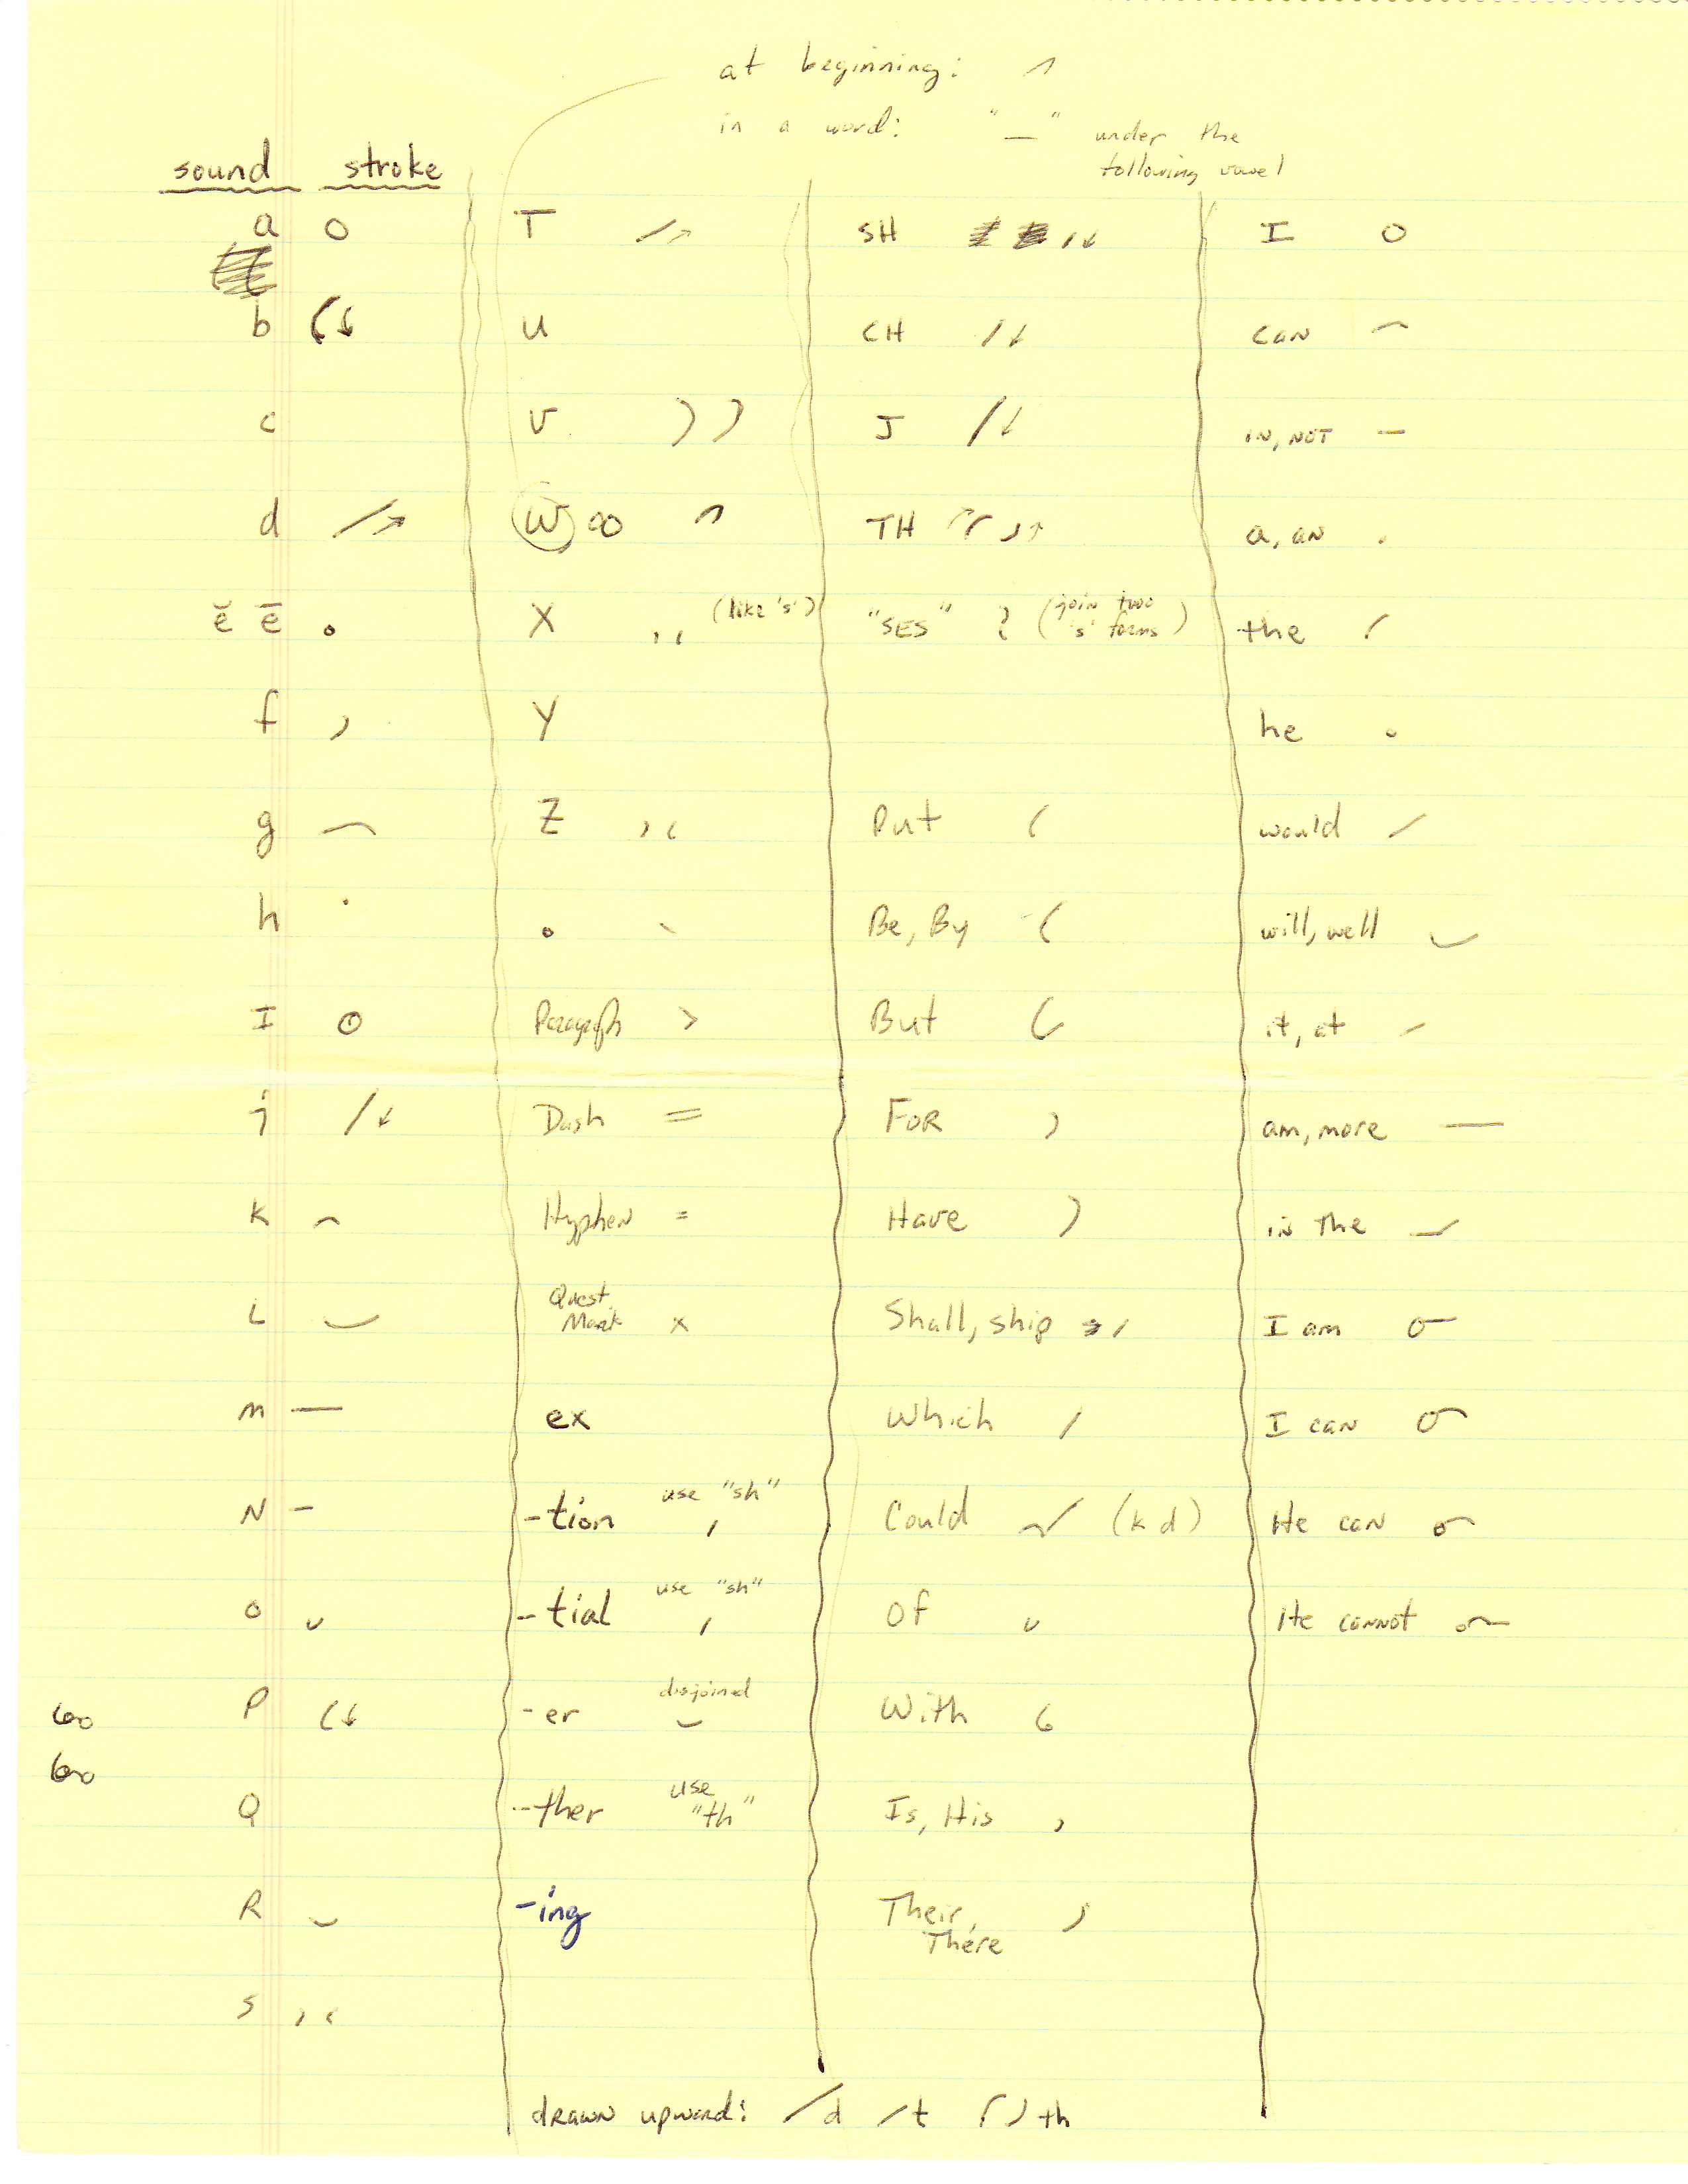 at beginning:
in a word: "—" under the
following vowel
sound stroke
a
b
c
d
ĕ ē
f
g
h
I
j
K
L
m
N
O
P
Q
R
S
T
U
V
W
X (like 's')
Y
Z
Paragraph >
Dash =
Hyphen =
Quest.
Mark x
ex
-tion use "sh"
-tial use "sh"
-er disjoined
-ther use
"th"
-ing
SH
CH
J
TH
"SES" (join two
's' forms)
Put
Be, By
But
FOR
Have
Shall, ship
Which
Could (k d)
Of
With
Is, His
Their,
There
I
CAN
IN, NOT
a, AN
the
he
would
will, well
it, at
am, more
in the
I am
I can
He can
He cannot
drawn upward: d t th